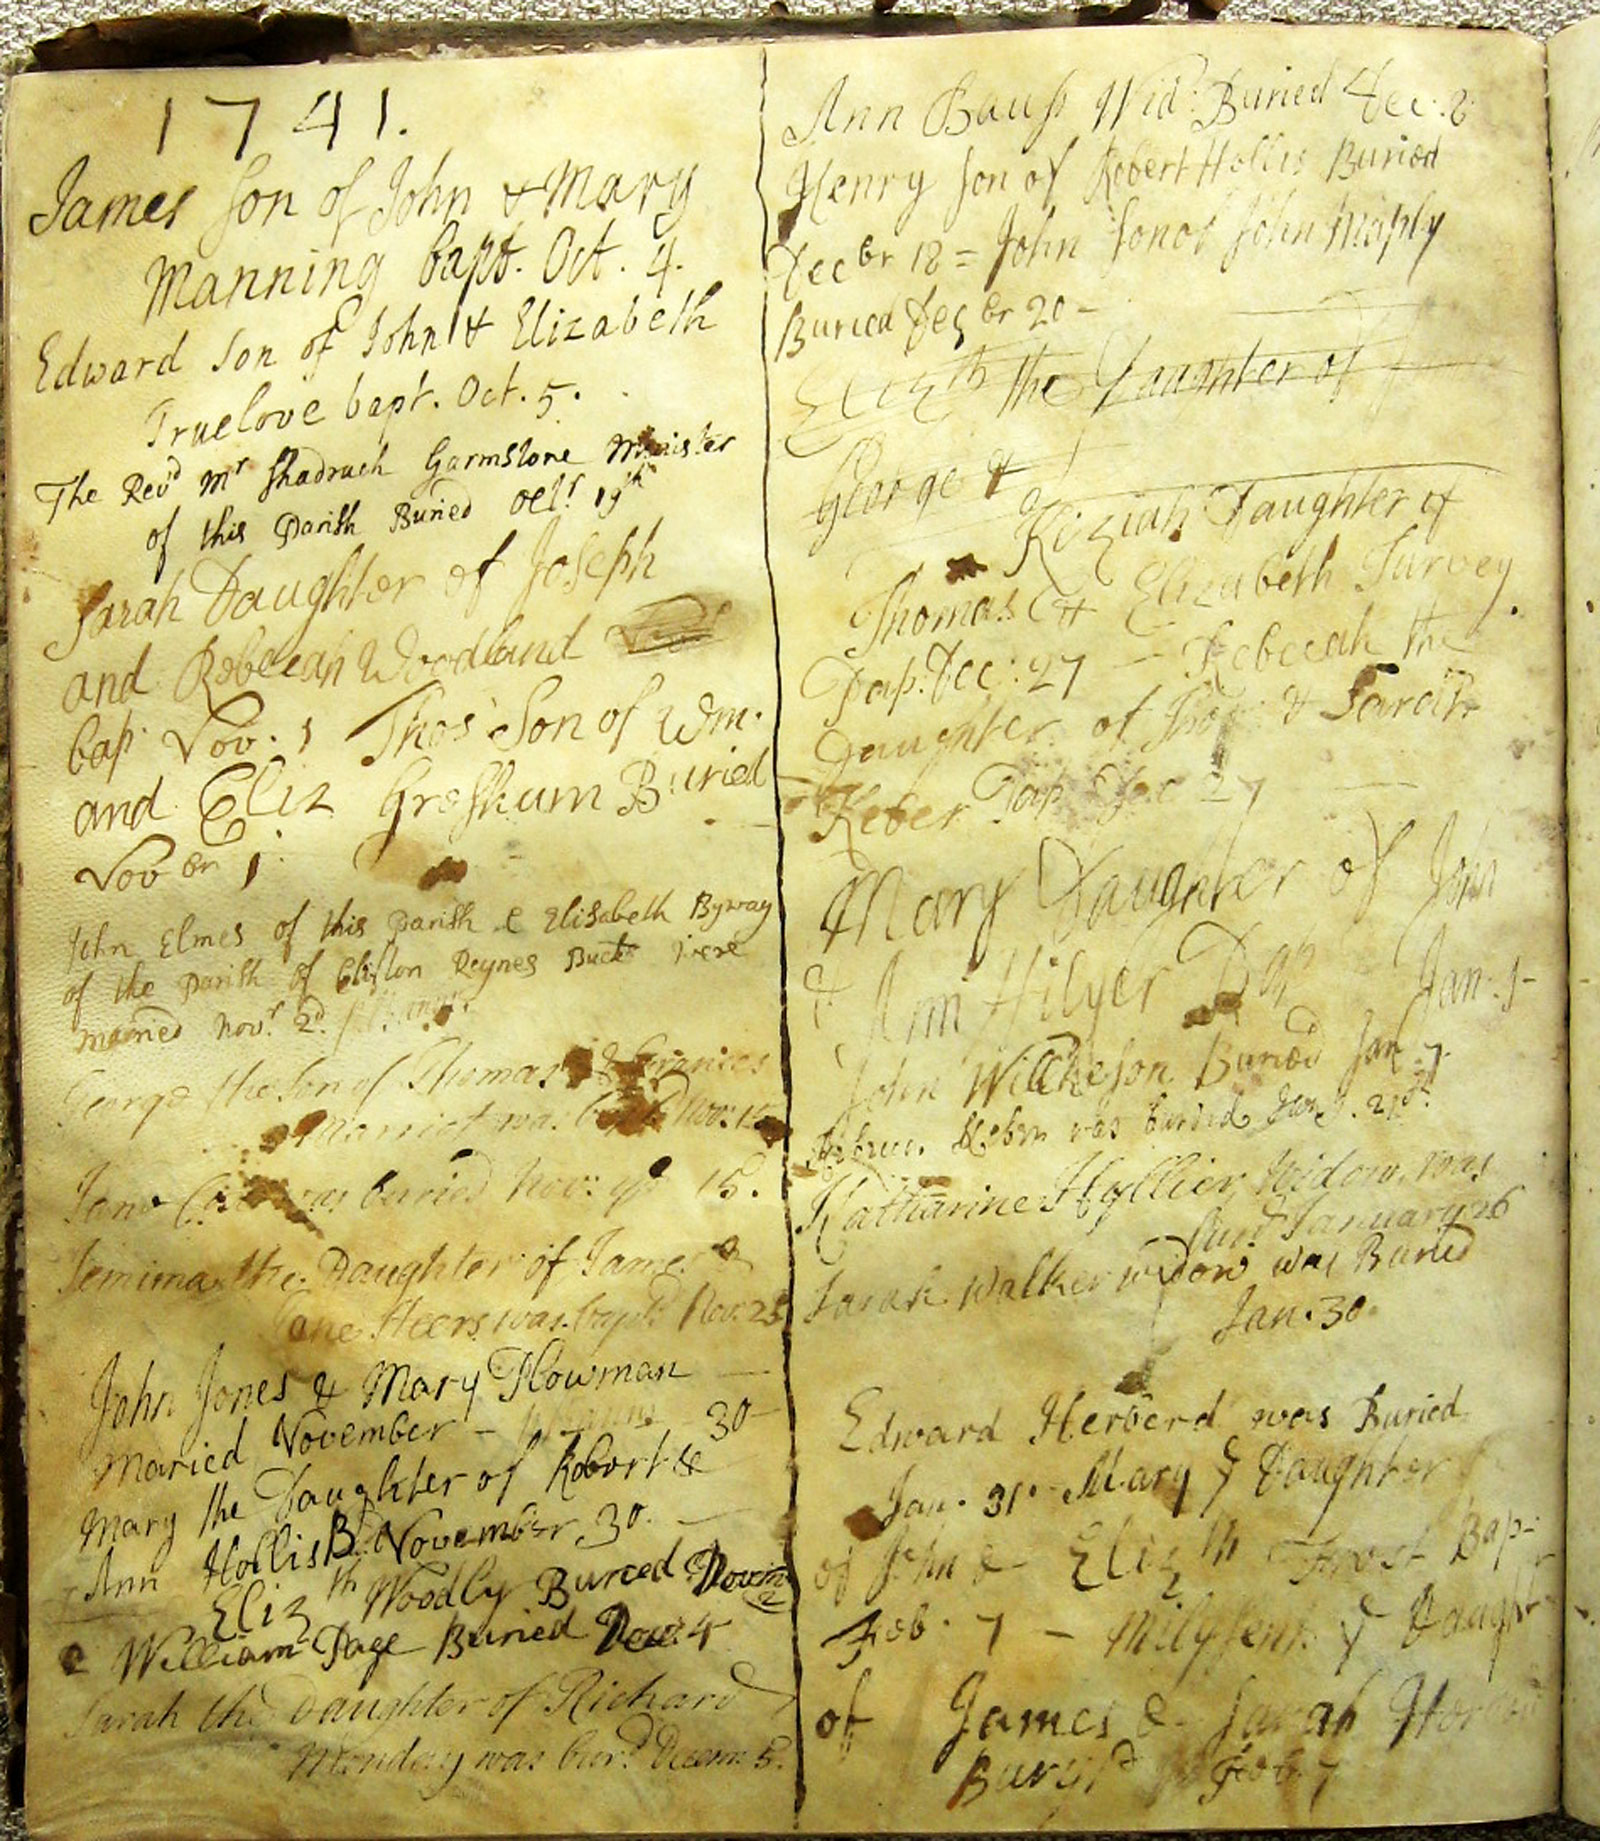 1741.
James son of John & Mary
Manning bapt. Oct. 4.
Edward Son of John & Elizabeth
Truelove bapt. Oct. 5.
The Revd Mr Shadrach Garmstone Minister
of this Parish Buried Octr. 19th
Sarah Daughter of Joseph
and Rebecah Woodland
bap. Nov. 1 Thos Son of Wm.
and Eliz Greshum Buried
Nov br 1
John Elmes of this Parish & Elisabeth Byway
of the Parish of Clifton Reynes Bucks were
married Novr. 2d.
George the Son of Thomas & Frances
Marriot was bapd Nov: 15
Jane was buried Nov: ye 15.
Jemima the Daughter of James &
Jane Heers was bapd. Nov. 25
John Jones & Mary Plowman
Maried November - 30
Mary the Daughter of Robert &
Ann Hollis B November 30.
Eliz th Woodly Buried
William Page Buried 4
Sarah the Daughter of Richard
Monday was burd. Decem: 5.
Ann Bauss Wid: Buried Dec: 8
Henry Son of Robert Hollis Buried
Decbr 18 = John Son of John Maply
Buried Decbr 20 -
Elizth the Daughter of
George &
Keziah Daughter of
Thomas & Elizabeth Turvey
Bap. Dec: 27 - Rebecah the
Daughter of Thos & Sarah
Keber Bap Dec 27
Mary Daughter of John
& Ann Hilyer Bap Jan. 1-
John Willcheson Buried Jan 7.
was buried Jany. 21st.
Katharine Hyllier, Widow, was
burd January 26
Sarah Walker widow was Buried
Jan. 30.
Edward Herberd was Buried
Jan. 31. Mary ye Daughter
of John & Eliz th Frost Bap-
Feb. 7 - Milysent ye Daught
of James & Sarah
Buryd Feb. 7